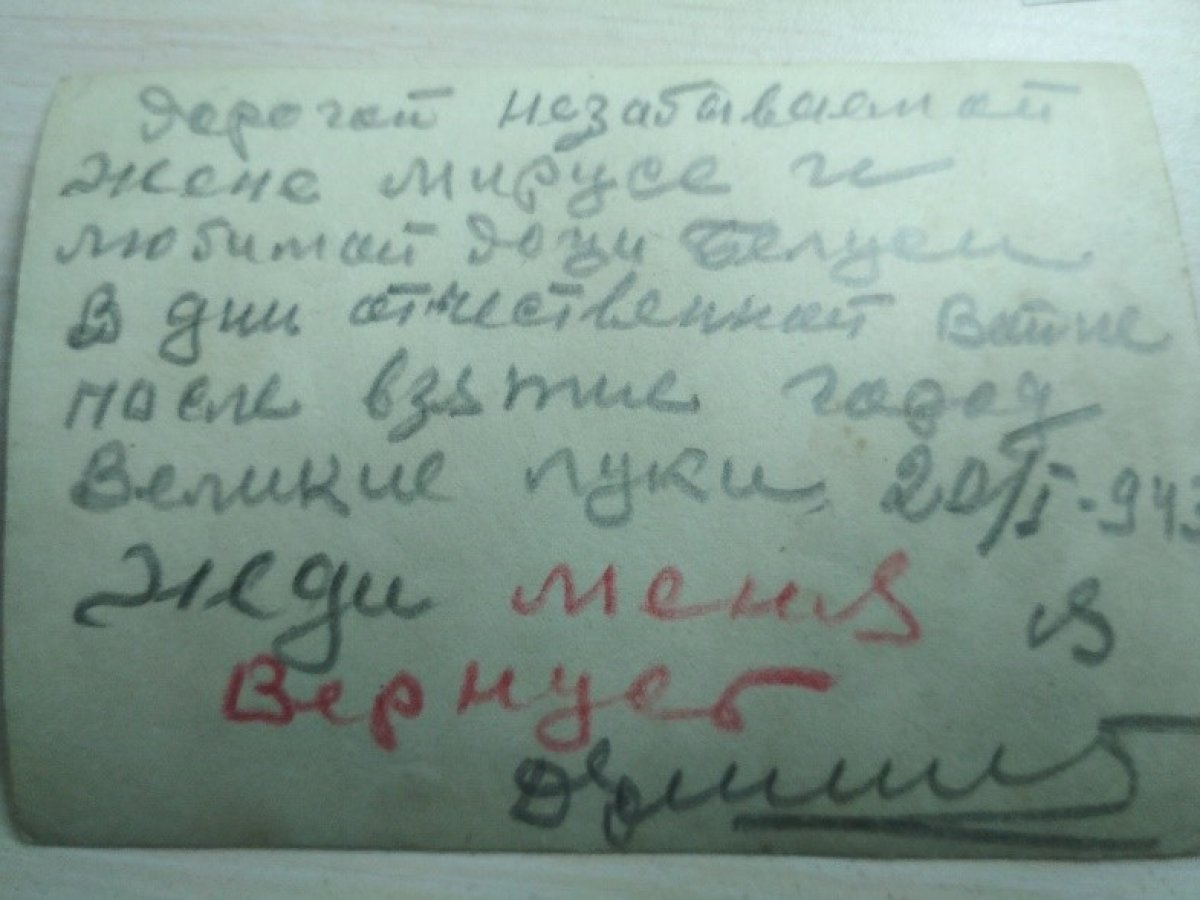 Дорогой незабываемой
жене мирусе и
любимой доци
В дни отчественной Войне
после взятие
Великие луки 20/I-943
жеди меня я
Вернусь